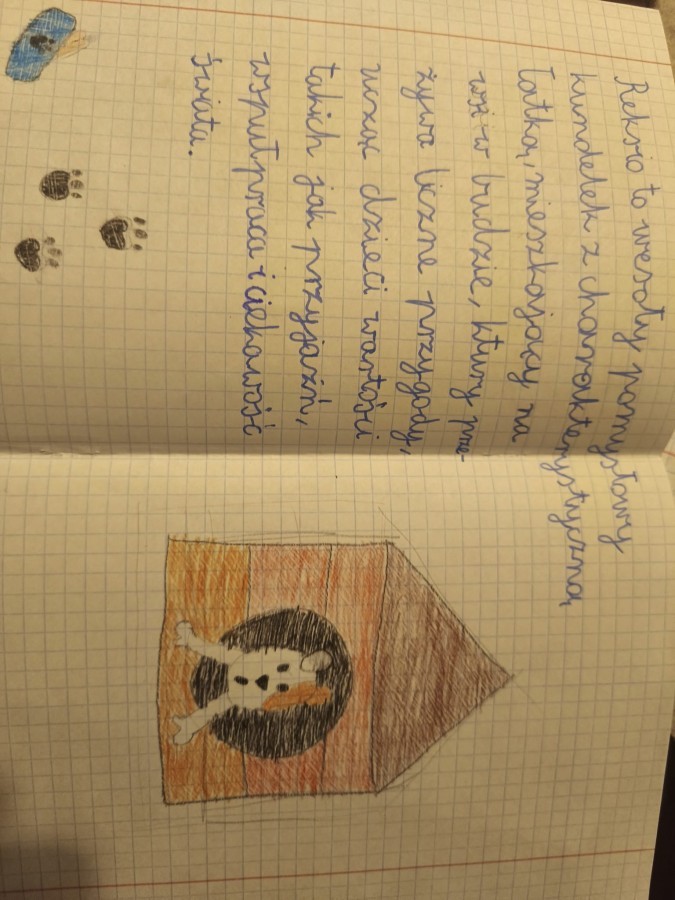 Reksio to wesoły pomysłowy
kundelek z charakterystyczną
łatką, mieszkający na
wsi w budzie, ktury prze-
żywa liczne przygody,
uczac dzieci wartości
takich jak przyjaźń,
wspułpraca i ciekawość
świata.